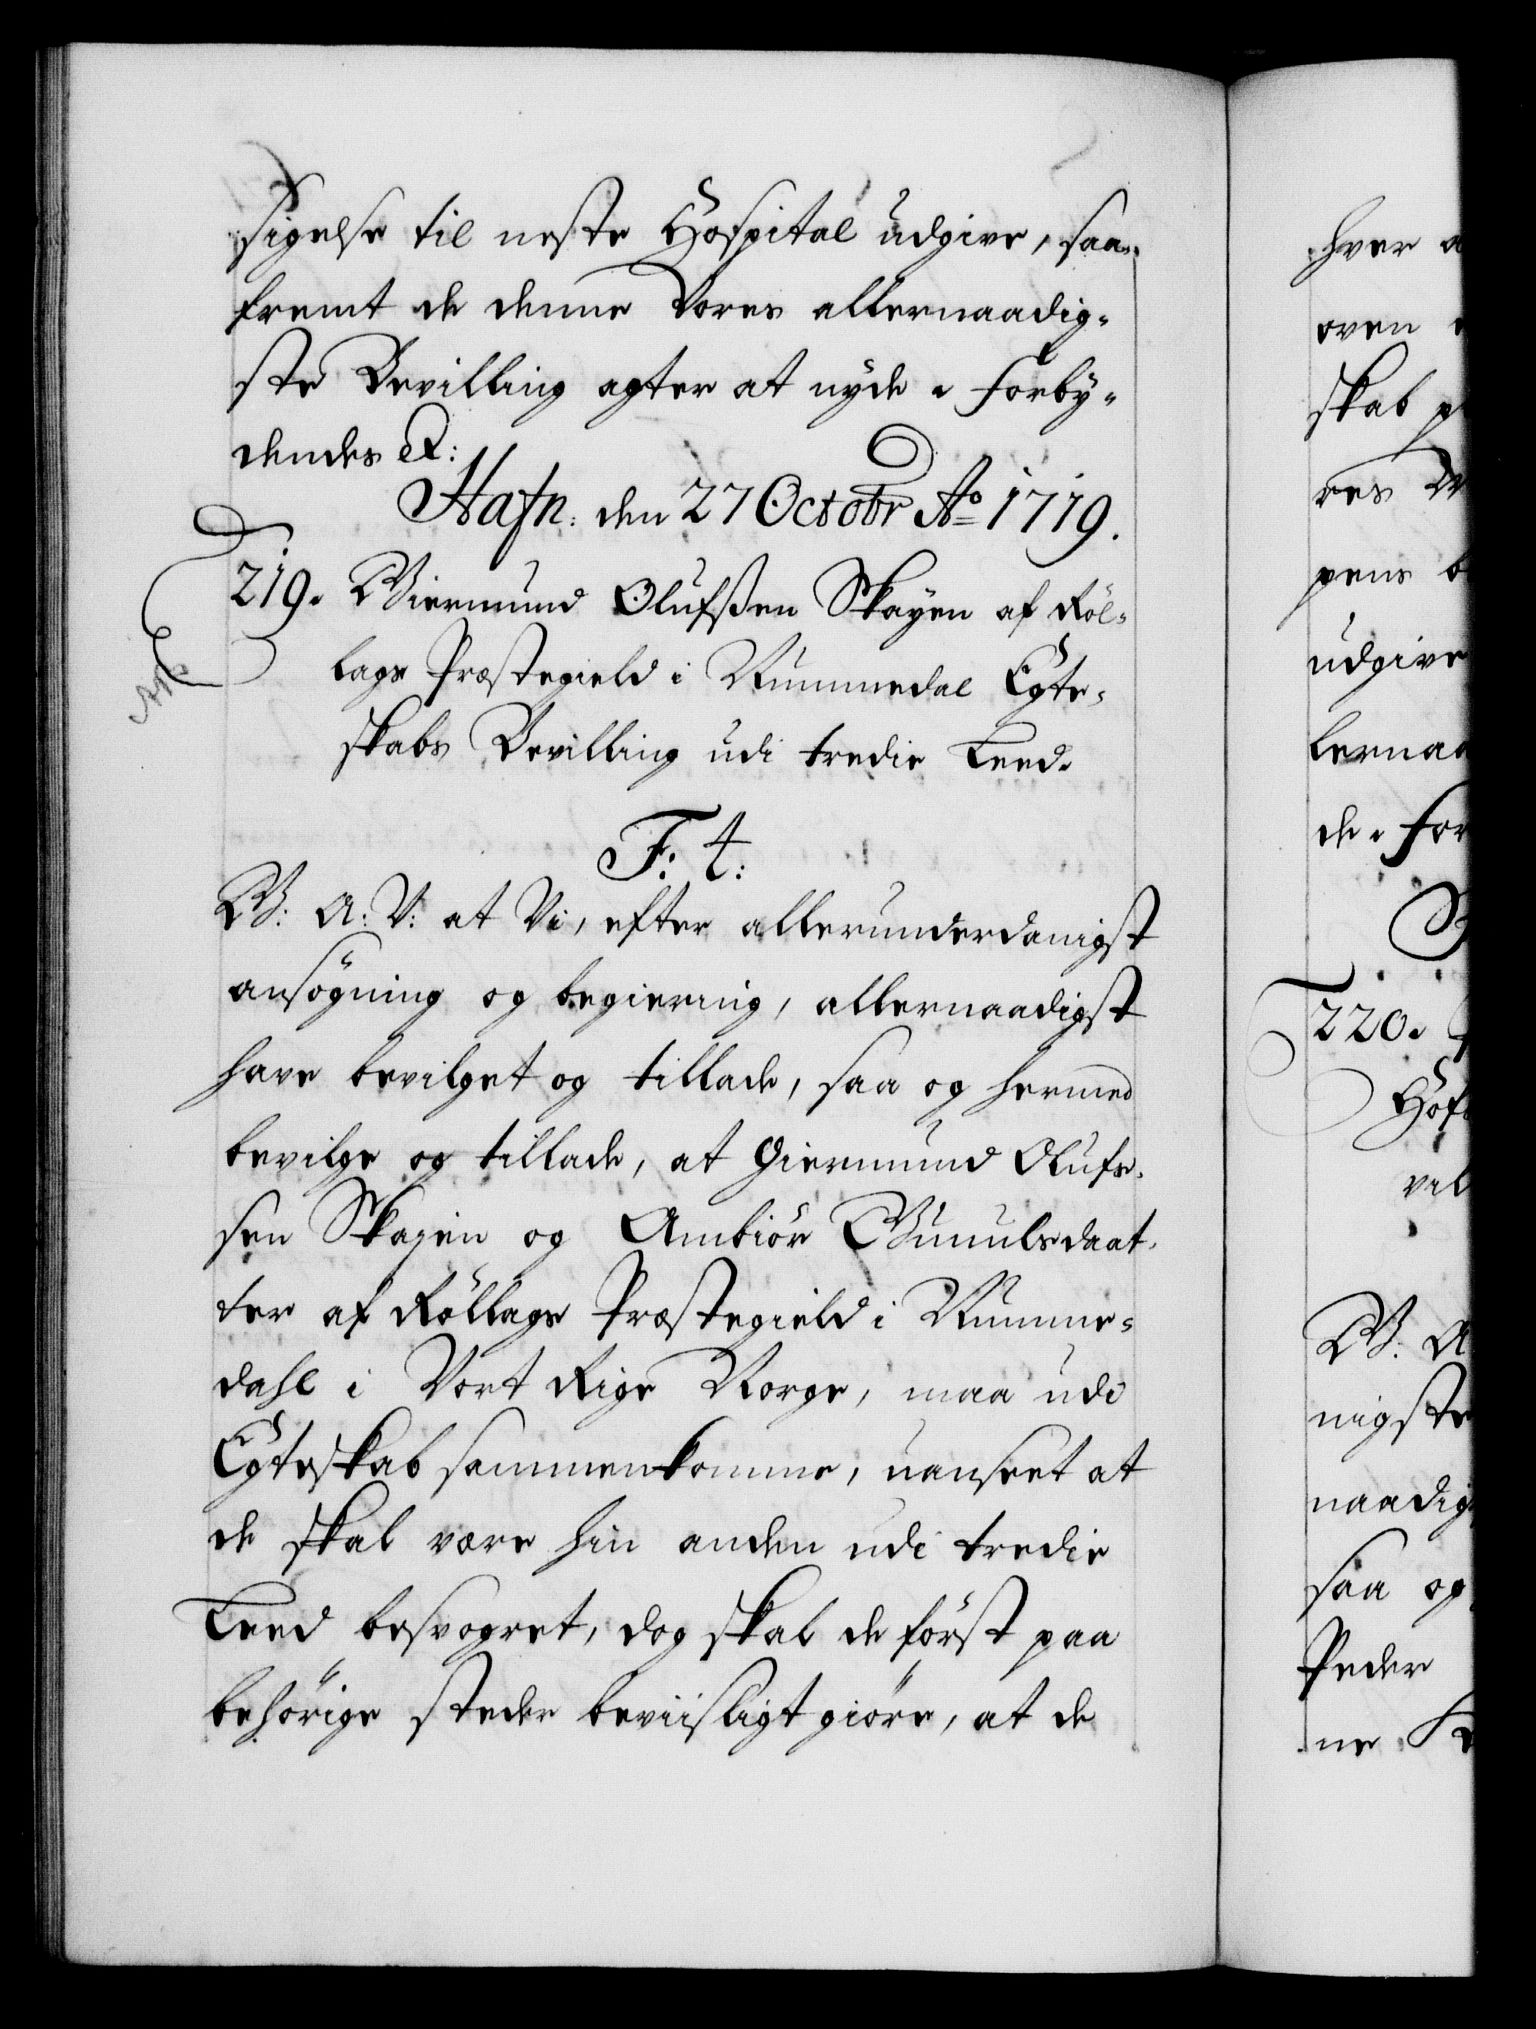 sigelse til neste Hospital udgive, saa-
fremt de denne Vores allernaadig-
ste Bevilling agter at nyde. Forby-
dendes &:
Hafn: den 27 Octobr Ao 1719.
219. Giermund Olufssen Skayen af Röl-
lags Præstegield i Nummedal Egte-
skabs Bevilling udi tredie Leed.
F. 4:
G: A: V: at Vi, efter allerunderdanigst
ansøgning og begiering, allernaadigst
have bevilget og tillade, saa og hermed
bevilge og tillade, at Giermund Olufs-
sen Skajen og Ambiör Gunulsdaat-
ter af Röllags Præstegield i Numme-
dahl i Vort Rige Norge, maa udi
Egteskab sammenkomme, uanseet at
de skal være hin anden udi tredie
Leed besvogret, dog skal de först paa
behörige steder beviisligt giöre, at de
hver a
oven
skab p
res
pens b
udgive
lernaa
de. For
220.
Hof
vil
G: A
nigste
naadig
saa og
Peder
ne